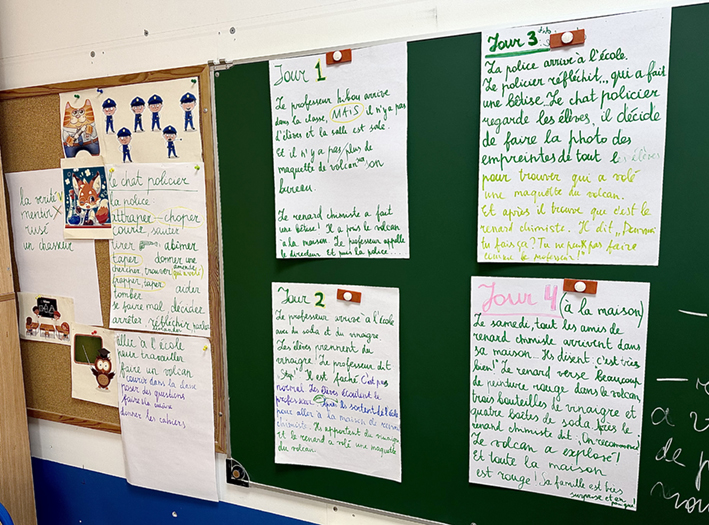 la vérité
mentir X
rusé
un chasseur
le chat policier
la police
attraper – choper
courir, sauter
tirer abîmer
taper donner une amende
chercher, trouver
frapper, taper aider
tomber
se faire mal, décider
arrêter, réfléchir, parler
aller à l'école
pour travailler
faire un volcan
courir dans la
poser des questions
faire
donner les cahiers
Jour 1
Le professeur hibou arrive
dans la classe, MAIS il n'y a pas
d'élèves et la salle est sale.
Et il n'y a pas/plus de
maquette de volcan sur son
bureau.
Le renard chimiste a fait
une bêtise! Il a pris le volcan
à la maison. Le professeur appelle
le directeur et puis la police...
Jour 2
Le professeur arrive à l'école
avec du soda et du vinaigre.
Les élèves prennent du
vinaigre! Le professeur dit
"Stop"! Il est fâché. C'est pas
normal. Les élèves écoutent le
professeur. Ils sortent de l'école
pour aller à la maison de renard
chimiste. Ils apportent du vinaigre
et le renard a volé une maquette
du volcan.
Jour 3
La police arrive à l'école.
Le policier réfléchit... qui a fait
une bêtise. Le chat policier
regarde les élèves, il décide
de faire la photo des
empreintes de tout les élèves
pour trouver qui a volé
une maquette du volcan.
Et après il trouve que c'est le
renard chimiste. Il dit "Pourquoi
tu fais ça? Tu ne peux pas faire
comme le professeur!"
Jour 4 (à la maison)
Le samedi, tout les amis de
renard chimiste arrivent dans
sa maison. Ils disent "c'est très
bien!" Le renard verse beaucoup
de peinture rouge dans le volcan,
trois bouteilles de vinaigre et
quatre boîtes de soda. Après le
renard chimiste dit "On recommence"
Le volcan a explosé!
Et toute la maison
est rouge! Sa famille est très
surprise et en
a v
de p